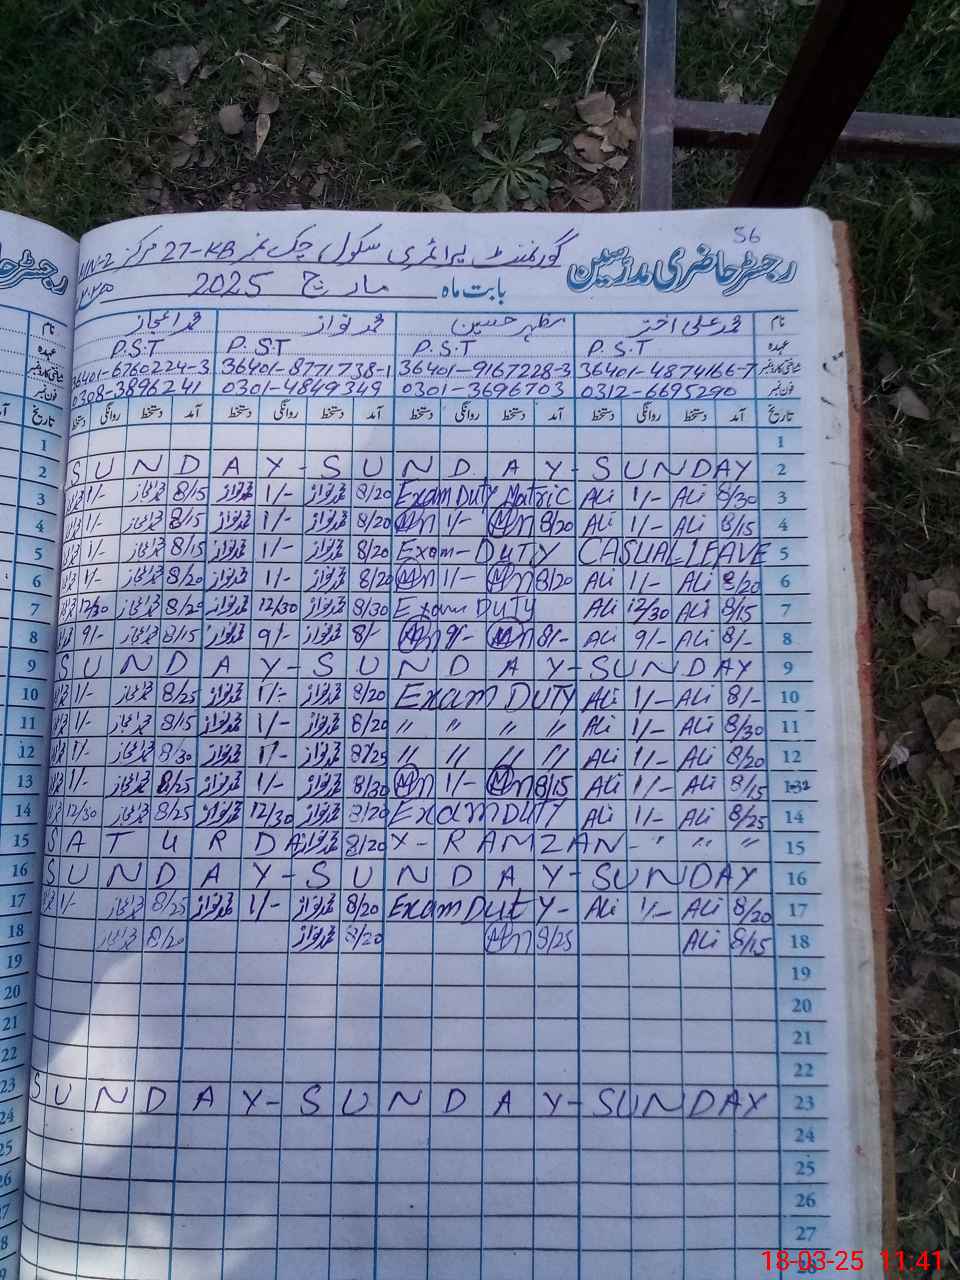 56
رجسٹر حاضری مدرسین
گورنمنٹ پرائمری سکول چک نمبر 27-KB مرکز MN-2
بابت ماہ مارچ 2025
نام محمد علی اختر مظہر حسین محمد نواز محمد اعجاز
عہدہ P.S.T P.S.T P.S.T P.S.T
شناختی کارڈ نمبر 36401-4874166-7 36401-9167228-3 36401-8771738-1 36401-6760224-3
فون نمبر 0312-6695290 0301-3696703 0301-4849349 0308-3896241
تاریخ آمد دستخط روانگی دستخط آمد دستخط روانگی دستخط آمد دستخط روانگی دستخط آمد دستخط روانگی دستخط
1
2 SUNDAY-SUNDAY-SUNDAY
3 8/30 Ali 1/- Ali Exam Duty Matric 8/20 محمد نواز 1/- محمد نواز 8/15 محمد اعجاز 1/-
4 8/15 Ali 1/- Ali 8/20 1/- 8/20 محمد نواز 1/- محمد نواز 8/15 محمد اعجاز 1/-
5 CASUAL LEAVE Exam-DUTY 8/20 محمد نواز 1/- محمد نواز 8/15 محمد اعجاز 1/-
6 8/20 Ali 1/- Ali 8/20 1/- 8/20 محمد نواز 1/- محمد نواز 8/20 محمد اعجاز 1/-
7 8/15 Ali 12/30 Ali Exam DUTY 8/30 محمد نواز 12/30 محمد نواز محمد اعجاز 12/30
8 8/- Ali 9/- Ali 8/- 9/- 8/- محمد نواز 9/- محمد نواز 8/15 محمد اعجاز 9/-
9 SUNDAY-SUNDAY-SUNDAY
10 8/- Ali 1/- Ali Exam DUTY 8/20 محمد نواز 1/- محمد نواز 8/25 محمد اعجاز 1/-
11 8/30 Ali 1/- Ali " " " " 8/20 محمد نواز 1/- محمد نواز 8/15 محمد اعجاز 1/-
12 8/20 Ali 1/- Ali " " " " 8/25 محمد نواز 1/- محمد نواز 8/30 محمد اعجاز 1/-
13 8/15 Ali 1/- Ali 8/15 1/- 8/30 محمد نواز 1/- محمد نواز 8/25 محمد اعجاز 1/-
14 8/25 Ali 1/- Ali Exam DUTY 8/20 محمد نواز 12/30 محمد نواز 8/25 محمد اعجاز 12/30
15 SATURDAY-RAMZAN- " " " 8/20 محمد نواز
16 SUNDAY-SUNDAY-SUNDAY
17 8/20 Ali 1/- Ali Exam Duty- 8/20 محمد نواز 1/- محمد نواز 8/25 محمد اعجاز 1/-
18 8/15 Ali 8/25 8/20 محمد نواز 8/20 محمد اعجاز
19
20
21
22
23 SUNDAY-SUNDAY-SUNDAY
24
25
26
27
28
18-03-25 11:41